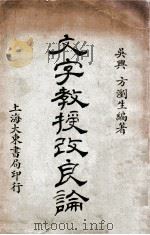 吳興 方瀏生編著
文字教授改良論
上海大東書局印行
www.mtoou.info